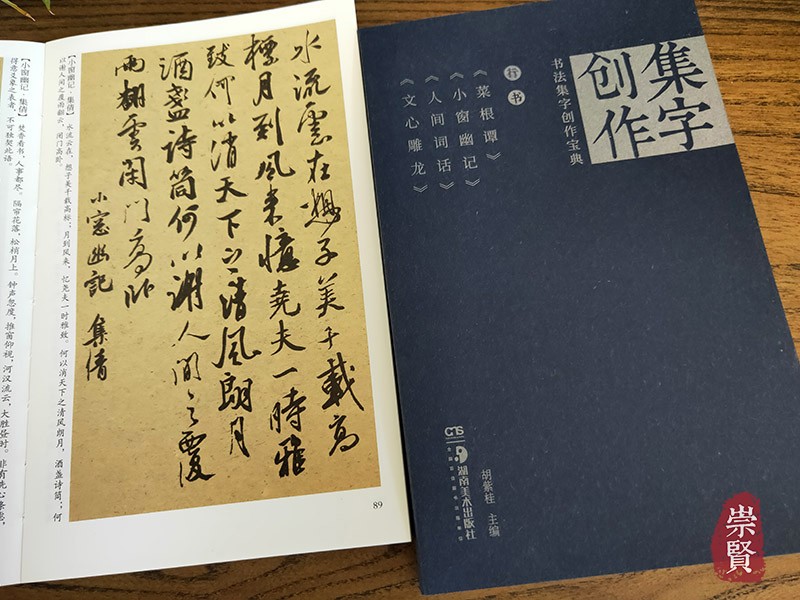 水流雲在想子美千載高
標月到風來憶堯夫一時雅
致何以消天下之清風朗月
酒盞詩筒何以謝人間之覆
雨翻雲閉門高卧
小窓幽記 集倩
【小窗幽记·集倩】 水流云在，想子美千载高标；月到风来，忆尧夫一时雅致。何以消天下之清风朗月，酒盏诗筒；何
以谢人间之覆雨翻云，闭门高卧。
【小窗幽记·集倩】 焚香看书，人事都尽。隔帘花落，松梢月上。钟声忽度，推窗仰视，河汉流云，大胜昼时。非有洗心涤虑，
得意爻象之表者，不可独契此语。
89
集字
创作
书法集字创作宝典
行书
《菜根谭》
《小窗幽记》
《人间词话》
《文心雕龙》
胡紫桂 主编
湖南美术出版社
崇賢